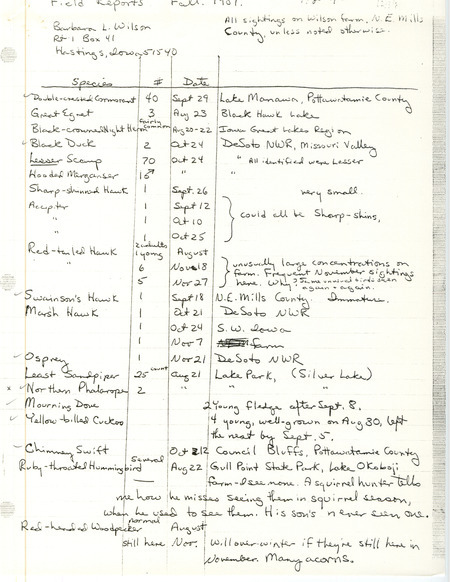 Field Reports Fall 1981
Barbara L. Wilson
Rt 1 Box 41
Hastings, Iowa 51540
All sightings on Wilson farm, N.E. Mills
County, unless noted otherwise.
Species # Date
Double-crested Cormorant 40 Sept 29 Lake Manawa, Pottawattamie County
Great Egret 3 Aug 23 Black Hawk Lake
Black-crowned Night Heron fairly common Aug 20-22 Iowa Great Lakes Region
Black Duck 2 Oct 24 DeSoto NWR, Missouri Valley
Lesser Scaup 70 Oct 24 " All identified were Lesser
Hooded Merganser 15 " "
Sharp-shinned Hawk 1 Sept. 26 very small.
Accipiter 1 Sept 12
" 1 Oct 10 could all be Sharp-shins,
" 1 Oct 25
Red-tailed Hawk 2 adults 1 young August
" 6 Nov 18 unusually large concentrations on
5 Nov 27 farm. Frequent November sightings
here. Why? Same unusual birds seen
again + again.
Swainson's Hawk 1 Sept 18 N.E. Mills County. Immature.
Marsh Hawk 1 Oct 21 DeSoto NWR
1 Oct 24 S.W. Iowa
1 Nov 7 farm
Osprey 1 Nov 21 DeSoto NWR
Least Sandpiper 25 count Aug 21 Lake Park, (Silver Lake)
x Northern Phalarope 2 " " "
Mourning Dove 2 Young fledge after Sept. 8.
Yellow-billed Cuckoo 4 young, well-grown on Aug 30, left
the nest by Sept. 5.
Chimney Swift Oct 12 Council Bluffs, Pottawattamie County
Ruby-throated Hummingbird several Aug 22 Gull Point State Park, Lake Okoboji
farm - I see none. A squirrel hunter tells
me how he misses seeing them in squirrel season,
when he used to see them. His son's never seen one.
Red-headed Woodpecker normal August
still here Nov. will over-winter if they're still here in
November. Many acorns.